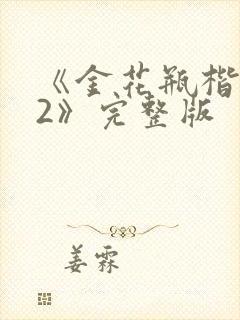 《金花瓶楷
2》完整版
姜霖